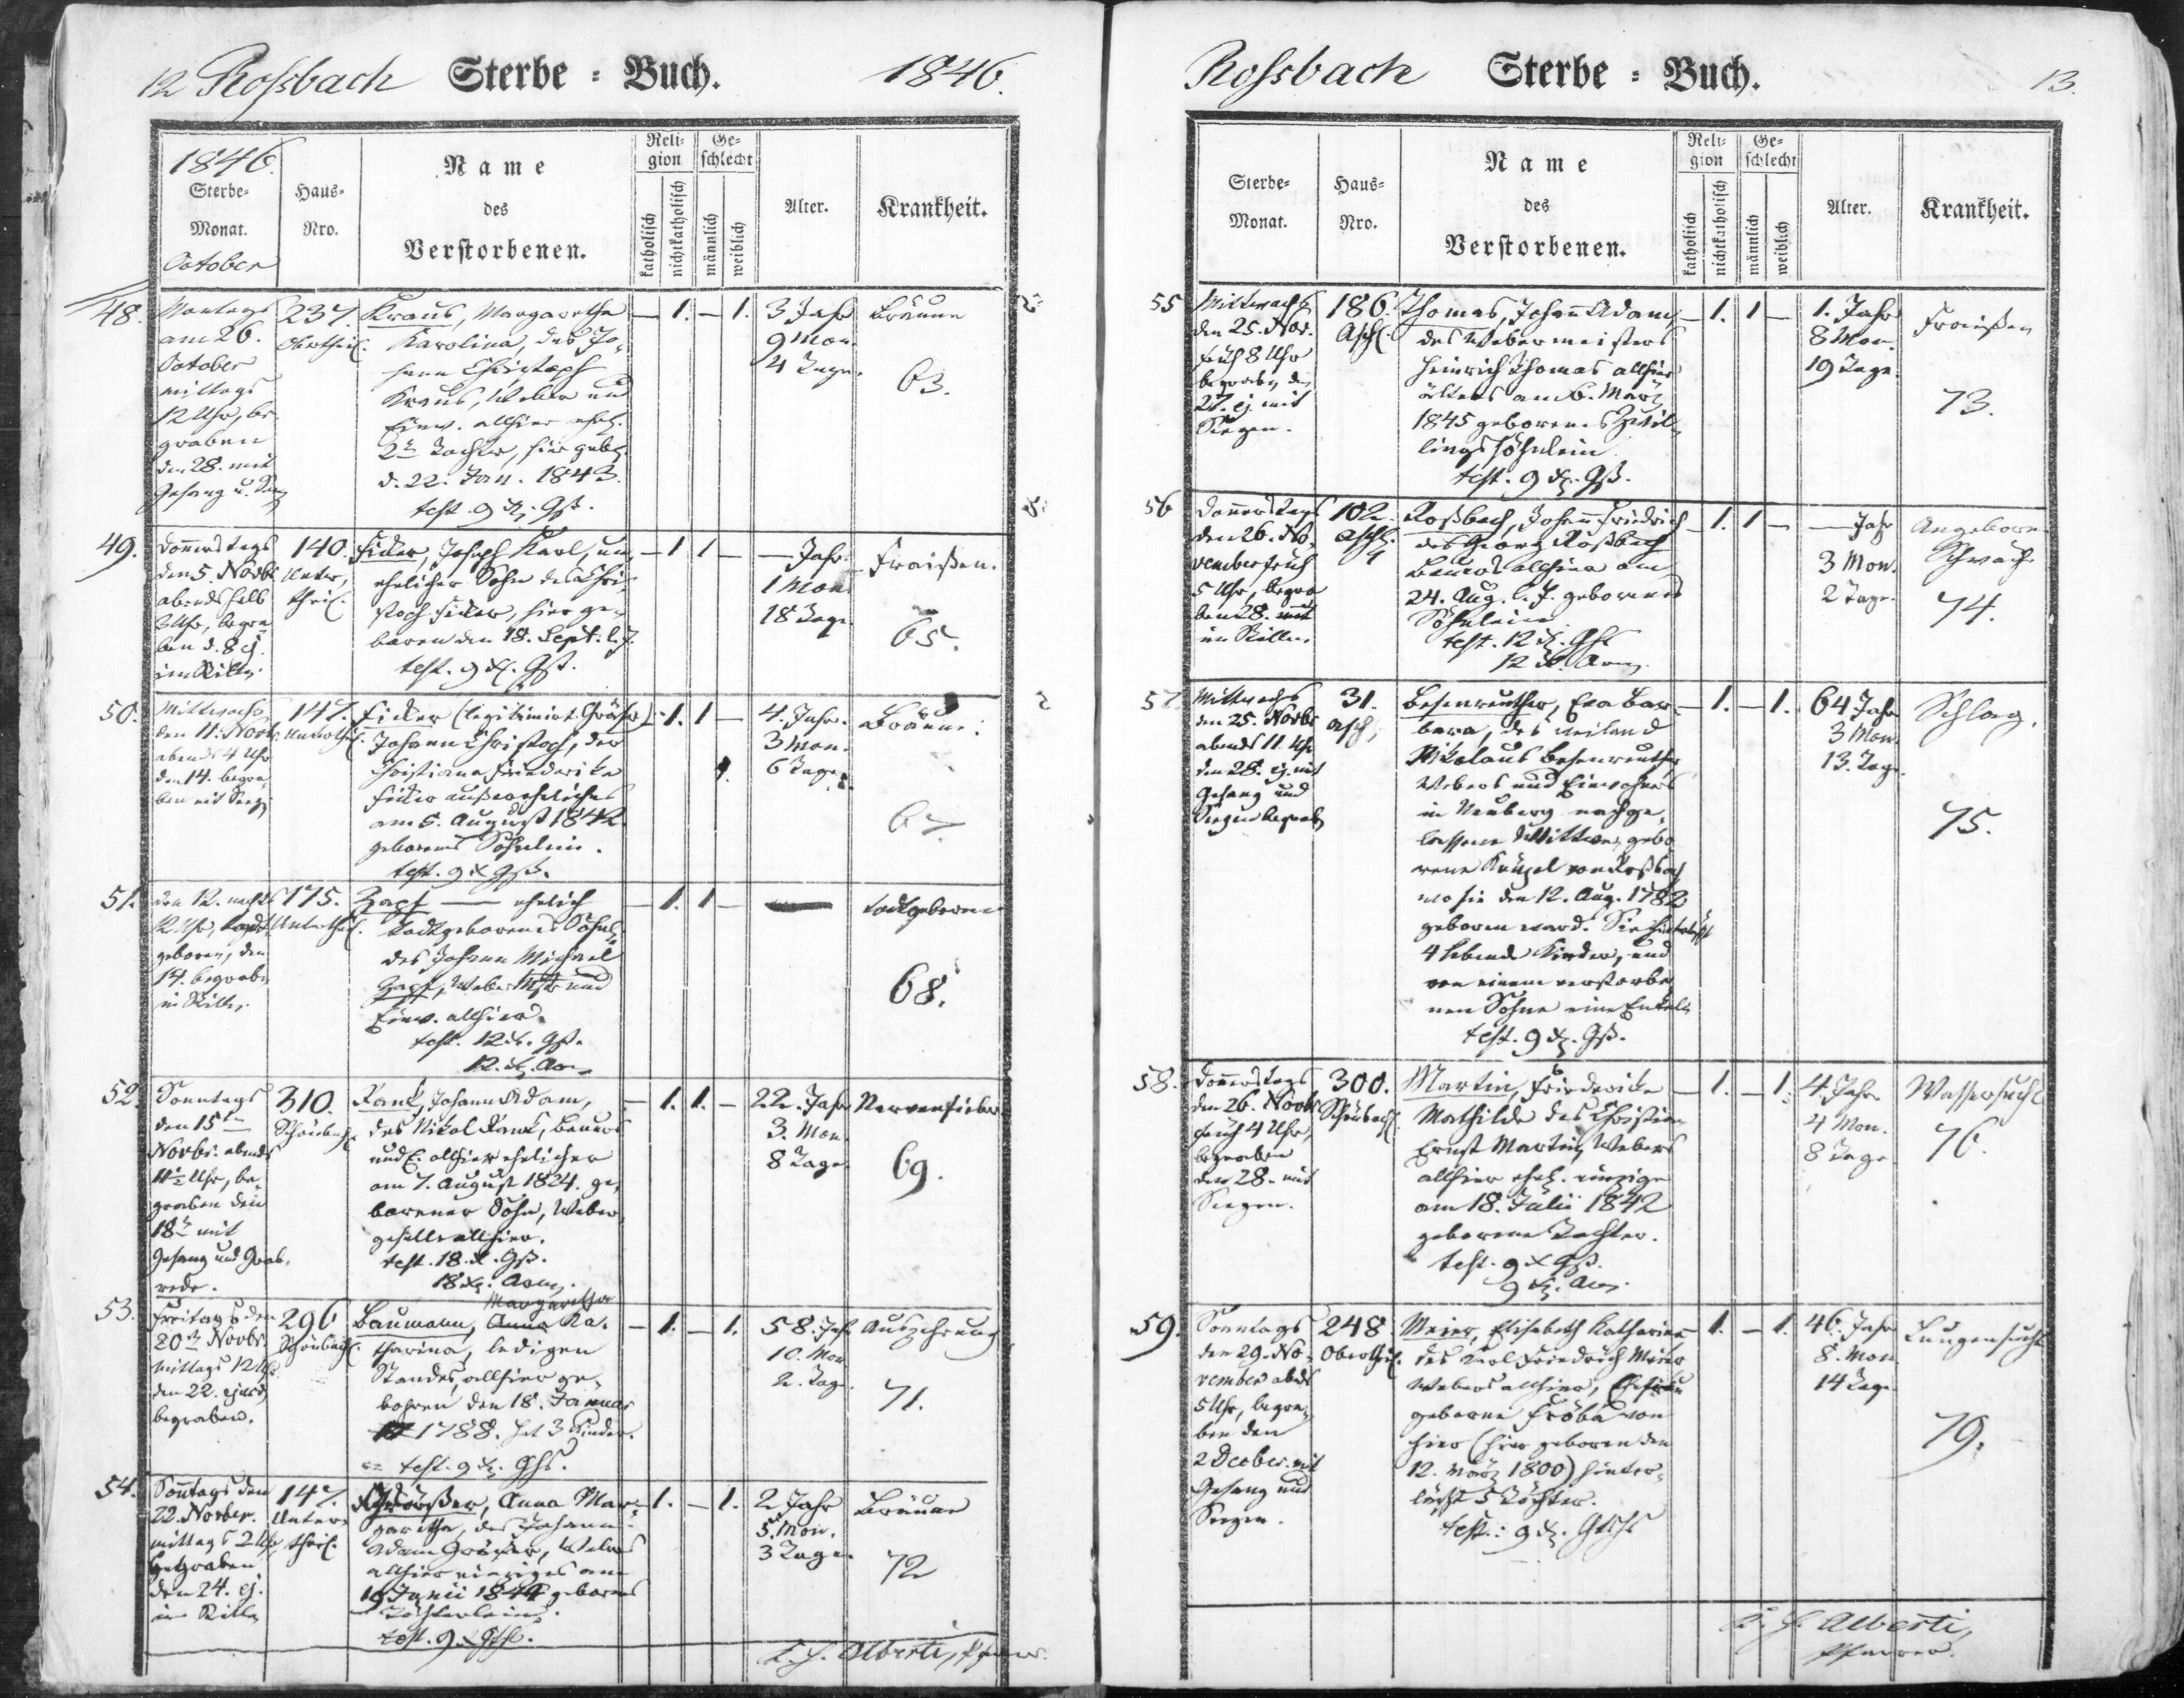 12 Rossbach Sterbe = Buch. 1846.
1846.
Sterbe-
Monat.
October
Haus-
Nro.
Name
des
Verstorbenen.
Reli-
gion
katholisch
nichtkatholisch
Ge-
schlecht
männlich
weiblich
Alter.
Krankheit.
48.
Montags
am 26.
October
mittags
12 Uhr, be-
graben
den 28. mit
Gesang u.
237.
Obertheil.
Kraus, Margaretha
Karolina, des Jo-
hann Christoph
Kraus, Weber und
Einw. allhier ehel.
2te Tochter, hier geb.
d. 22. Jan. 1843.
test.
— 1. — 1.
3 Jahr
9 Mon.
4 Tage.
Bräune
63.
49.
Donnerstags
den 5. Novbr
abends halb
Uhr, begra-
ben d. 8 ej.
im Stillen.
140.
Unter-
theil.
Ficker, Joseph Karl, un-
ehelicher Sohn des Chri-
stoph Ficker, hier ge-
boren den 18. Sept. l. J.
test.
— 1 1 —
— Jahr
1 Mon.
18 Tage
Fraißen.
65.
50.
Mittwochs
den 11. Novbr.
abends 4 Uhr
den 14. begra-
ben mit Segen
147.
Untertheil.
Ficker (legitimirt
Johann Christoph, der
Christiana Friedericke
Ficker außereheliches
am 5. August 1842
geborenes Söhnlein.
test.
— 1. 1 —
4. Jahr.
3 Mon.
6 Tage.
Bräune.
51.
den 12. nachts
12 Uhr, todt
geboren, den
14. begraben
im Stillen.
175.
Untertheil.
Zapf — ehelich
todtgeborenes Söhnl.
des Johann Michael
Zapf, Weber Mstr und
Einw. allhier.
test. 12
12
— 1. 1 —
todtgeboren
68.
52.
Sonntags
den 15ten
Novbr. abends
11½ Uhr, be-
graben den
18n mit
Gesang und Grab-
rede.
310.
Schönbach.
Rank, Johann Adam,
des Nikol Rank, Bauers
und E. allhier ehelicher
am 7. August 1824. ge-
borener Sohn, Weber-
geselle allhier.
test. 18
18
— 1. 1. —
22. Jahr
3. Mon.
8 Tage
Nervenfieber
69.
53.
Freitags den
20n Novbr.
mittags 12 Uhr
den 22. ejusd.
begraben.
296
Schönbach.
Margaretha
Baumann, Anna Ka-
tharina, ledigen
Standes, allhier ge-
bohren den 18. Januar
1788. hat 3 Kinder.
test.
— 1. — 1.
58. Jahr
10. Mon
2. Tage
Auszehrung
71.
54.
Sonntags den
22. Novber.
mittags 2 Uhr
begraben
den 24. ej.
im Stillen
147.
Unter-
theil.
Anna Mar-
garetha, des Johann
Adam Webers
allhier einziges am
19 Junii 1844 geborenes
Töchterlein.
test.
— 1. — 1.
2 Jahr
5. Mon.
3 Tage.
Bräune
72
Alberti, Pfarrer.
Rossbach Sterbe = Buch. 13.
Sterbe-
Monat.
Haus-
Nro.
Name
des
Verstorbenen.
Reli-
gion
katholisch
nichtkatholisch
Ge-
schlecht
männlich
weiblich
Alter.
Krankheit.
55
Mittwochs
den 25. Nov.
früh 8 Uhr
begraben den
27. ej. mit
Segen.
186.
Asch.
Thomas, Johann Adam,
des Webermeisters
Heinrich Thomas allhier
ältestes am 6. März
1845 geborenes Zwil-
lingssöhnlein
test.
— 1. 1 —
1. Jahr
8 Mon.
19 Tage.
Fraißen
73.
56
Donnerstags
den 26. No-
vember früh
5 Uhr, begra-
ben 28. mit
im Stillen.
102.
Asch.
Roßbach, Johann Friedrich
des Georg Roßbach
Bauers allhier am
24. Aug. l. J. geborenes
Söhnlein.
test. 12
12
— 1. 1 —
— Jahr
3 Mon.
2 Tage.
Angeborne
Schwäche
74.
57.
Mittwochs
den 25. Novbr
abends 11 Uhr
den 28. ej. mit
Gesang und
Segen begrab.
31.
Asch.
Besenreuther, Eva Bar-
bara, des weiland
Nikolaus Besenreuther
Webers und Einwohners
in Neuberg nachge-
lassene Wittwe, gebo-
rene Künzel von Roßbach
wo sie den 12. Aug. 1782
geboren ward. Sie hinterläßt
4 lebende Kinder, und
von einem verstorbe-
nen Sohne eine Enkelin
test.
— 1. — 1.
64 Jahr
3 Mon.
13. Tage
Schlag.
75.
58.
Donnerstags
den 26. Novbr
früh 4 Uhr,
begraben
den 28. mit
Segen.
300.
Schönbach.
Martin, Friedericke
Mathilde des Christian
Ernst Martin, Webers
allhier ehel. einzige
am 18. Julii 1842
geborene Tochter.
test.
— 1. — 1.
4 Jahr
4 Mon.
8 Tage
Wassersucht
76.
59.
Sonntags
den 29. No-
vember abds
5 Uhr, begra-
ben den
2 December mit
Gesang und
Segen.
248
Obertheil.
Meier, Elisabeth Katharina
des Karl Friedrich Meier
Webers allhier, Ehefrau
geborne Fröba von
hier (hier geboren den
12. März 1800) hinter-
läßt 5 Töchter.
test.:
— 1. — 1.
46. Jahr
8. Mon
14 Tage
Lungensucht
79.
Alberti,
Pfarrer.